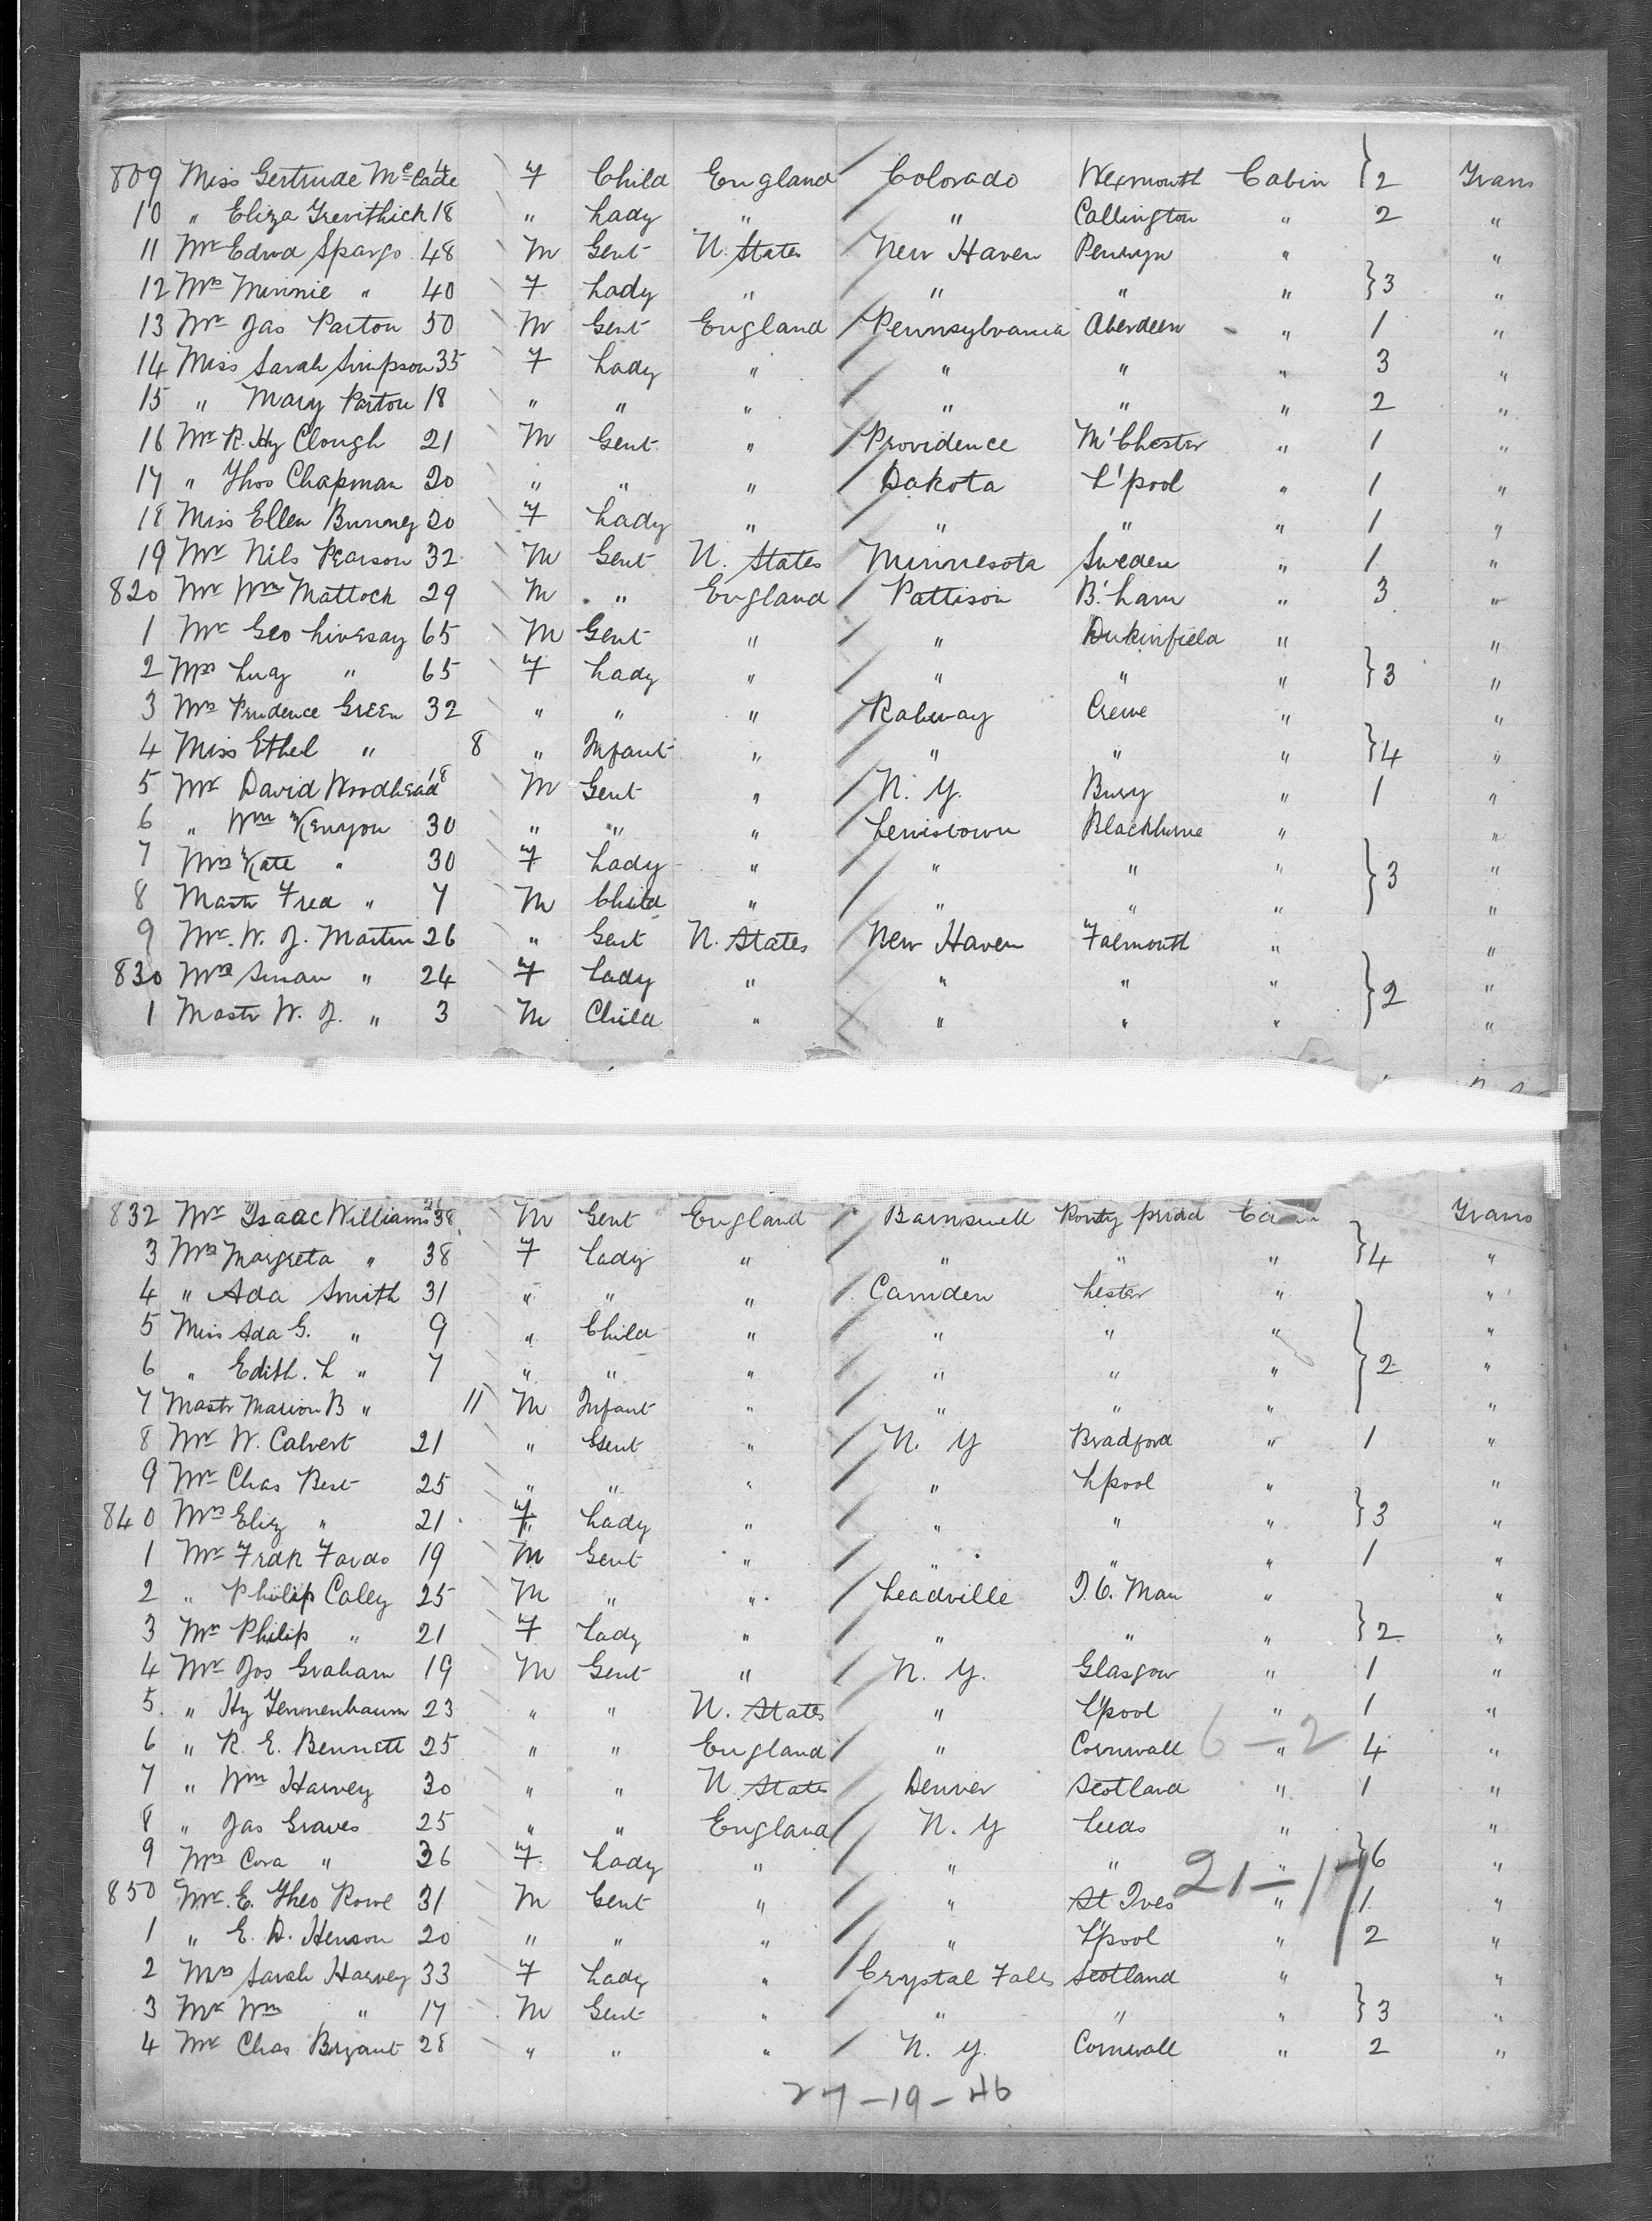 809 Miss Gertrude McCade 4 F Child England Colorado Wexmouth Cabin } 2 Trans
10 " Eliza Trevithick 18 " Lady " " Callington " 2 "
11 Mr Edwd Spargo 48 M Gent U. States New Haven Penryn " "
12 Mrs Minnie " 40 F Lady " " " " } 3 "
13 Mr Jas Parton 50 M Gent England Pennsylvania Aberdeen " 1 "
14 Miss Sarah Simpson 35 F Lady " " " " 3 "
15 " Mary Parton 18 " " " " " " 2 "
16 Mr R. Hy Clough 21 M Gent " Providence M'Chester " 1 "
17 " Thos Chapman 20 " " " Dakota L'pool " 1 "
18 Miss Ellen Bunney 20 F Lady " " " " 1 "
19 Mr Nils Pearson 32 M Gent U. States Minnesota Sweden " 1 "
820 Mr Wm Mattock 29 M " England Pattison B'ham " 3 "
1 Mr Geo Livesay 65 M Gent " " Dukinfield " "
2 Mrs Lucy " 65 F Lady " " " " } 3 "
3 Mrs Prudence Green 32 " " " Rahway Crewe " "
4 Miss Ethel " 8 " Infant " " " " } 4 "
5 Mr David Woodhead 18 M Gent " N. Y. Bury " 1 "
6 " Wm Kenyon 30 " " " Lewistown Blackburne " "
7 Mrs Kate " 30 F Lady " " " " } 3 "
8 Mastr Fred " 7 M Child " " " " "
9 Mr. W. J. Martin 26 " Gent U. States New Haven Falmouth " "
830 Mrs Susan " 24 F Lady " " " " } 2 "
1 Mastr W. J. " 3 M Child " " " " "
832 Mr Isaac Williams 38 M Gent England Barnswell Ponty pridd Ca Trans
3 Mrs Margreta " 38 F Lady " " " " } 4 "
4 " Ada Smith 31 " " " Camden Lester " "
5 Miss Ada G. " 9 " Child " " " " "
6 " Edith. L " 7 " " " " " " } 2 "
7 Mastr Marion B " 11 M Infant " " " " "
8 Mr W. Calvert 21 " Gent " N. Y Bradford " 1 "
9 Mr Chas Best 25 " " " " Lpool " "
840 Mrs Eliz " 21 F Lady " " " " } 3 "
1 Mr Fredk Fardo 19 M Gent " " " " 1 "
2 " Philip Caley 25 M " " Leadville I. O. Man " "
3 Mrs Philip " 21 F Lady " " " " } 2 "
4 Mr Jos Graham 19 M Gent " N. Y. Glasgow " 1 "
5 " Hy Tennenbaum 23 " " U. States " L'pool " 1 "
6 " R. E. Bennett 25 " " England " Cornwall " 4 "
6 - 2
7 " Wm Harvey 30 " " U. States Denver Scotland " 1 "
8 " Jas Graves 25 " " England N. Y Leeds " "
9 Mrs Cora " 26 F Lady " " " " } 6 "
21 - 17
850 Mr. E. Theo Rowe 31 M Gent " " St Ives " 1 "
1 " E. D. Henson 20 " " " " L'pool " 2 "
2 Mrs Sarah Harvey 33 F Lady " Crystal Falls Scotland " "
3 Mr Wm " 17 M Gent " " " " } 3 "
4 Mr Chas Bryant 28 " " " N. Y. Cornwall " 2 "
27 - 19 - 46